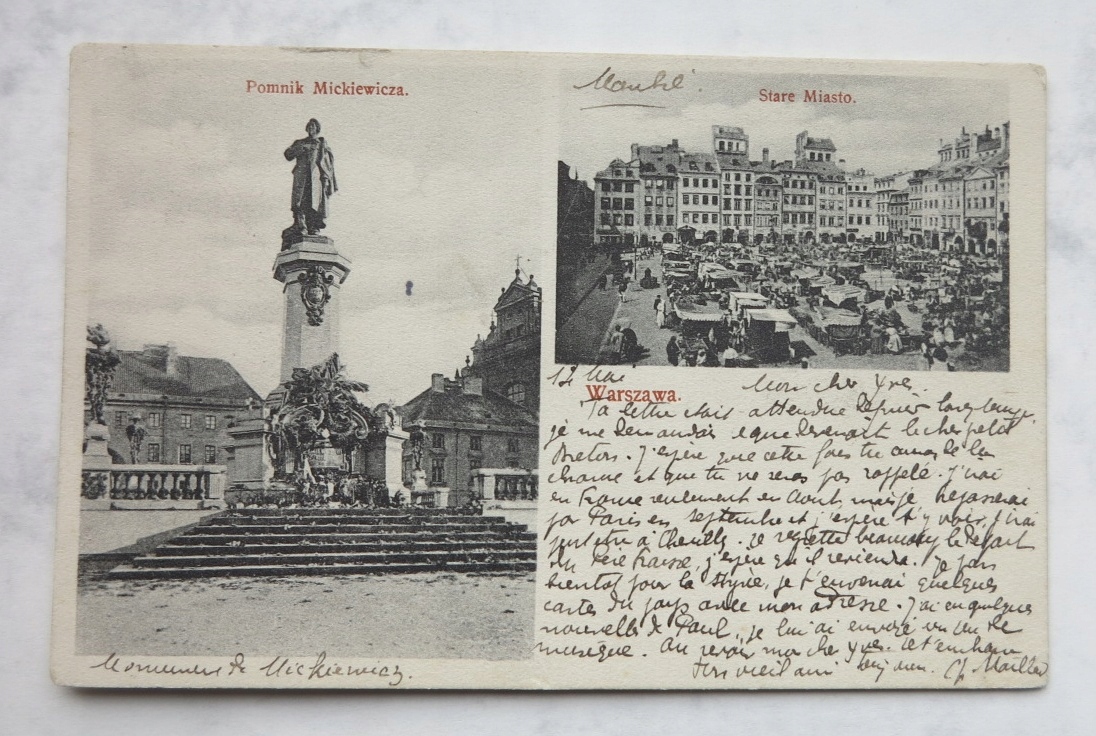 Pomnik Mickiewicza.
Marché.
Stare Miasto.
12 Mai
Warszawa.
Mon cher Yves.
Ta lettre était attendue depuis longtemps
je me demandais ce que devenait le cher petit
Breton. J'espère que cette fois tu auras de la
chance et que tu ne seras pas rappelé. J'irai
en France seulement en Aout, mais je repasserai
par Paris en Septembre et j'espère t'y voir, j'irai
peut être à Chevilly. Je regrette beaucoup le départ
du Père Fraisse, j'espère qu'il reviendra. Je pars
bientot pour la Styrie, je t'enverrai quelques
cartes du pays avec mon adresse. J'ai eu quelques
nouvelles de Paul, je lui ai envoyé un
musique. Au revoir mon cher Yves. Je t'embrasse
Ton vieil ami
Monument de Mickiewicz.